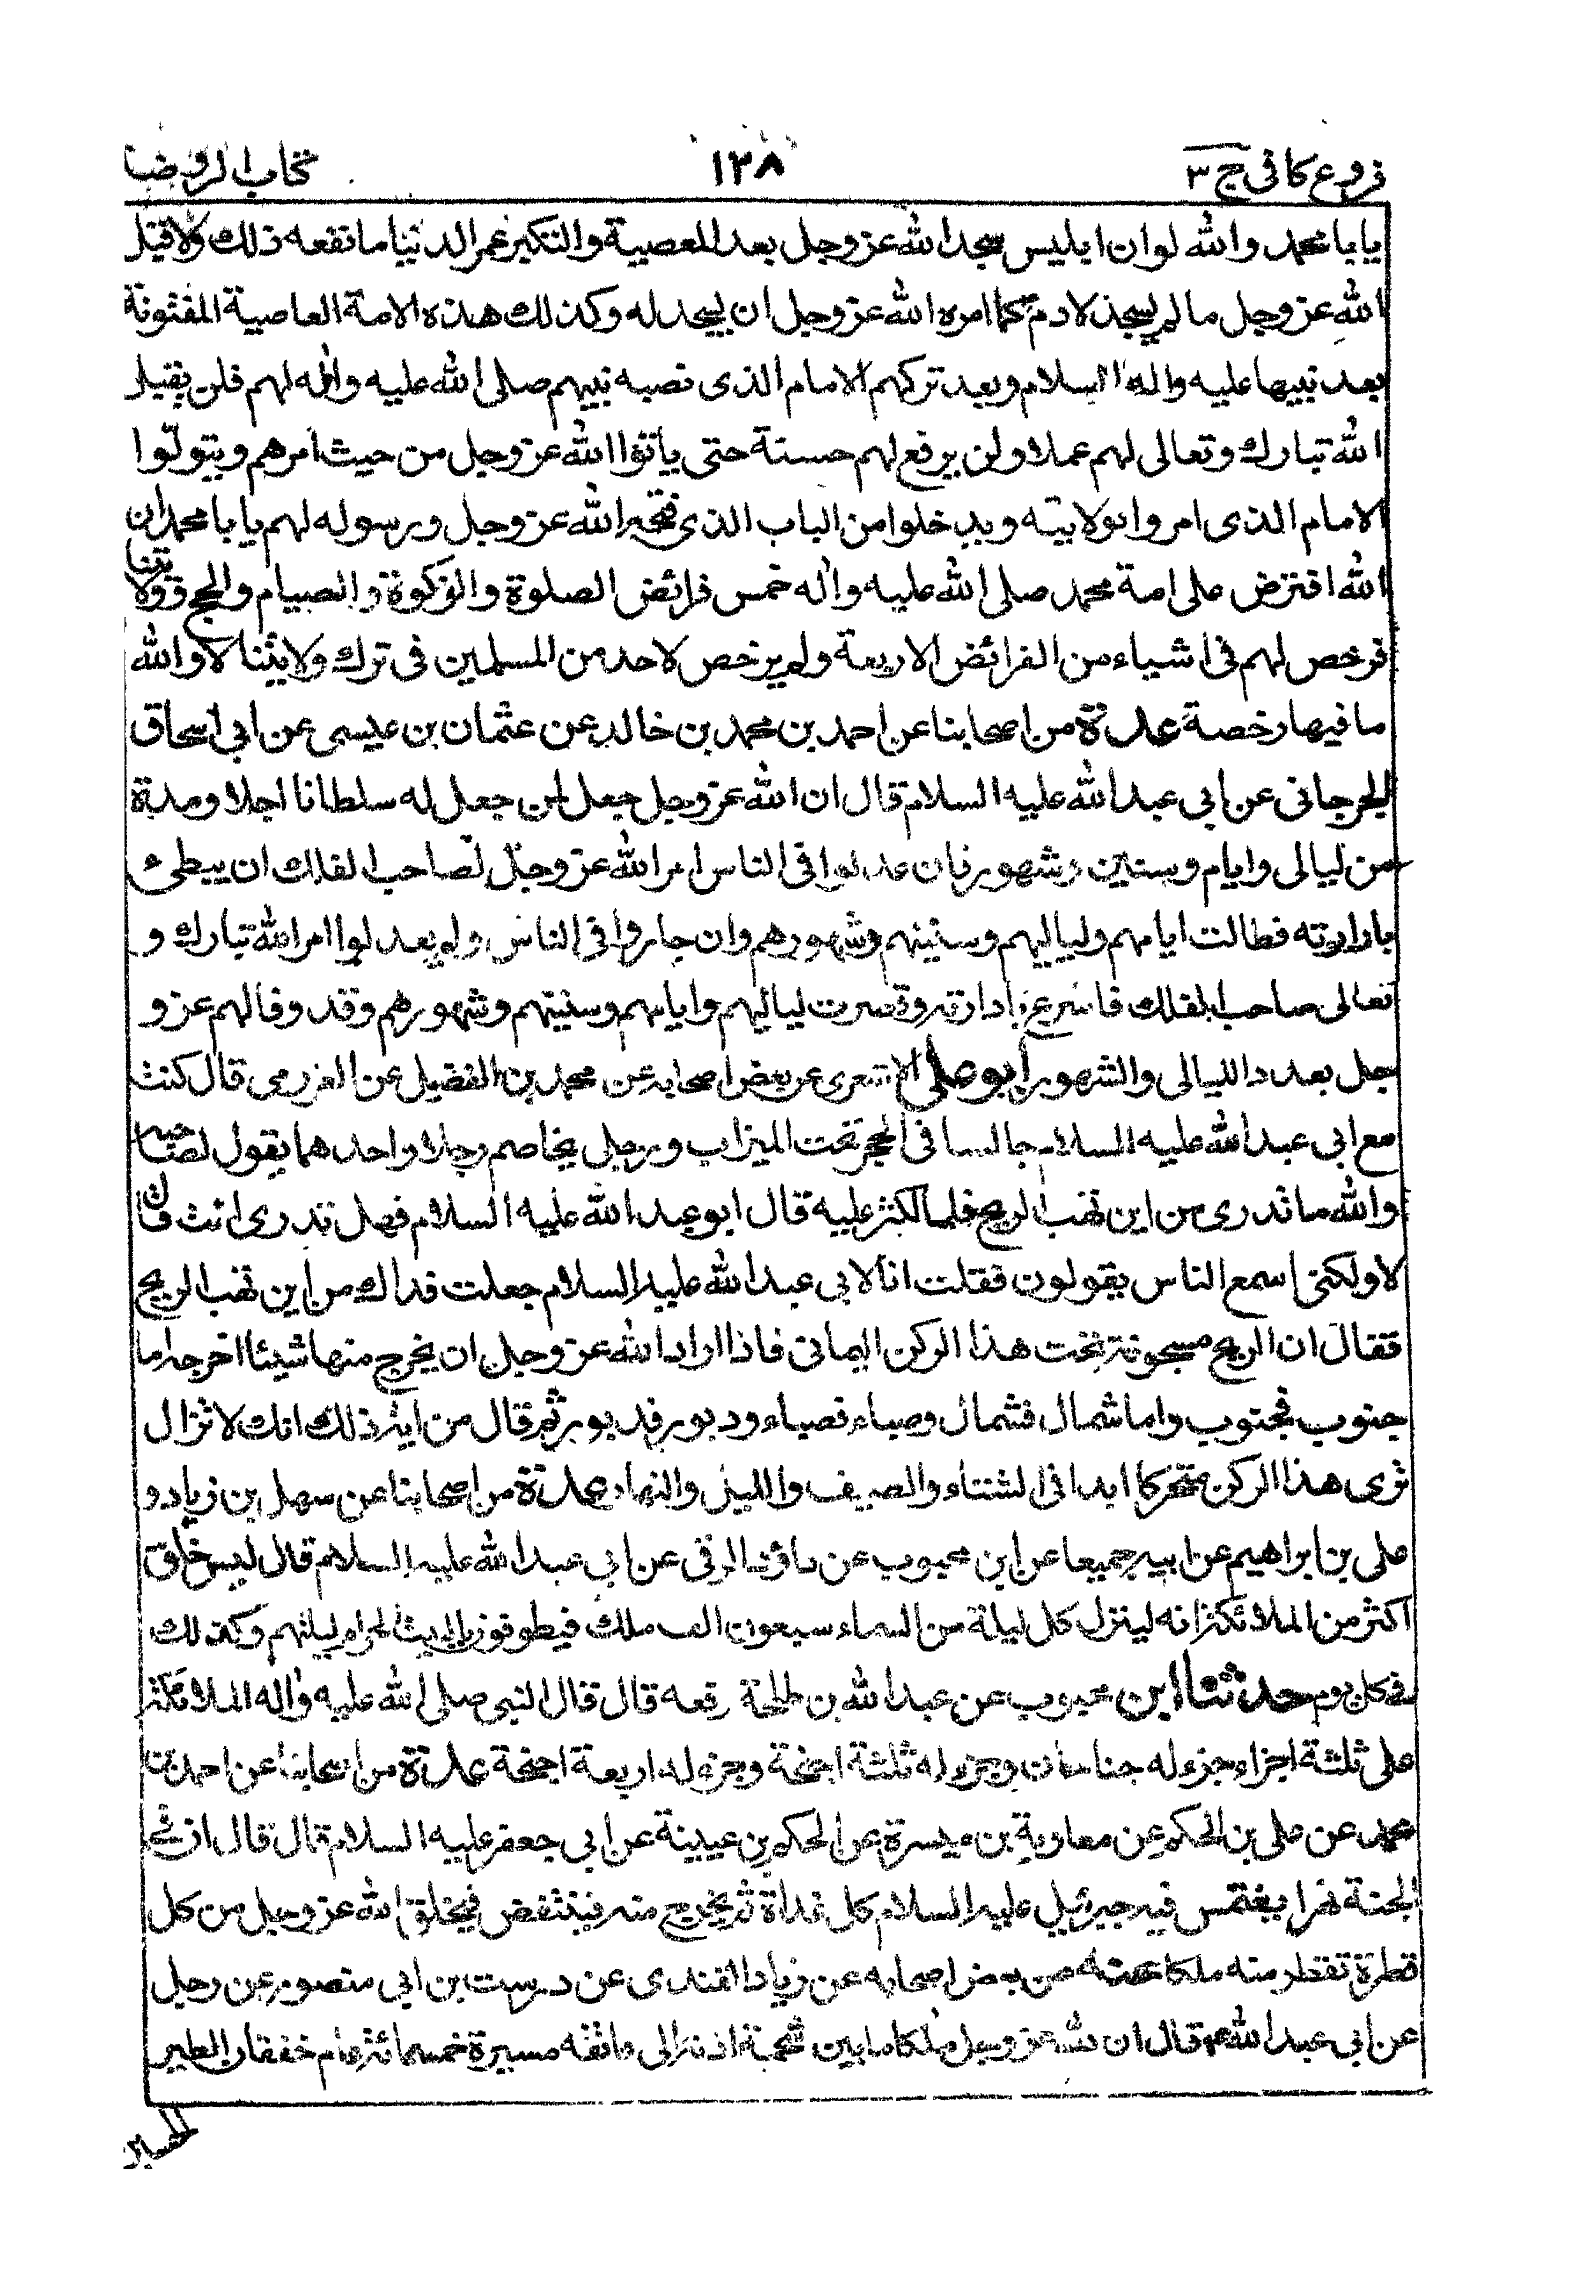 فروع كافى ج ٣
١٣٨
كتاب الروضة
يا با محمد والله لو ان ابليس سجد الله عز وجل بعد المعصية والتكبر عمر الدنيا ما نفعه ذلك ولا قبل
الله عز وجل ما لم يسجد لادم كما امره الله عز وجل ان يسجد له وكذلك هذه الامة العاصية المفتونة
بعد نبيها عليه واله السلام وبعد تركهم الامام الذى نصبه نبيهم صلى الله عليه واله لهم فلن يقبل
الله تبارك وتعالى لهم عملا ولن يرفع لهم حسنة حتى يأتوا الله عز وجل من حيث امرهم ويتولوا
الامام الذى امروا بولايته ويدخلوا من الباب الذى فتحه الله عز وجل ورسوله لهم يا با محمد ان
الله افترض على امة محمد صلى الله عليه واله خمس فرائض الصلوة والزكوة والصيام والحج وولايتنا
فرخص لهم فى اشياء من الفرائض الاربعة ولم يرخص لاحد من المسلمين فى ترك ولايتنا لا والله
ما فيها رخصة عدة من اصحابنا عن احمد بن محمد بن خالد عن عثمان بن عيسى عن ابى اسحاق
الجرجانى عن ابى عبد الله عليه السلام قال ان الله عز وجل جعل لمن جعل له سلطانا اجلا ومدة
من ليالى وايام وسنين وشهور فان عدلوا فى الناس امر الله عز وجل لصاحب الفلك ان يبطئ
بادارته فطالت ايامهم ولياليهم وسنينهم وشهورهم وان جاروا فى الناس ولم يعدلوا امر الله تبارك و
تعالى صاحب الفلك فاسرع بادارته وقصرت لياليهم وايامهم وسنينهم وشهورهم وقد وفا لهم عز و
جل بعدد الليالى والشهور ابو على الاشعرى عن بعض اصحابه عن محمد بن الفضيل عن العزرمى قال كنت
مع ابى عبد الله عليه السلام جالسا فى الحجر تحت الميزاب ورجل يخاصم رجلا واحدهما يقول لصاحبه
والله ما تدرى من اين تهب الريح فلما اكثر عليه قال ابو عبد الله عليه السلام فهل تدرى انت قال
لا ولكنى اسمع الناس يقولون فقلت انا لابى عبد الله عليه السلام جعلت فداك من اين تهب الريح
فقال ان الريح مسجونة تحت هذا الركن اليمانى فاذا اراد الله عز وجل ان يخرج منها شيئا اخرجه اما
جنوب فجنوب واما شمال فشمال وصباء فصباء ودبور فدبور ثم قال من اية ذلك انك لا تزال
ترى هذا الركن متحركا ابدا فى الشتاء والصيف والليل والنهار عدة من اصحابنا عن سهل بن زياد و
على بن ابراهيم عن ابيه جميعا عن ابن محبوب عن داود الرقى عن ابى عبد الله عليه السلام قال ليس خلق
اكثر من الملائكة انه لينزل كل ليلة من السماء سبعون الف ملك فيطوفون بالبيت الحرام ليلتهم وكذلك
فى كل يوم حدثنا ابن محبوب عن عبد الله بن طلحة رفعه قال قال النبى صلى الله عليه واله الملائكة
على ثلثة اجزاء جزء له جناحان وجزء له ثلثة اجنحة وجزء له اربعة اجنحة عدة من اصحابنا عن احمد بن
محمد عن على بن الحكم عن معاوية بن ميسرة عن الحكم بن عيينة عن ابى جعفر عليه السلام قال قال ان فى
الجنة نهرا يغتمس فيه جبرئيل عليه السلام كل غداة ثم يخرج منه فينتفض فيخلق الله عز وجل من كل
قطرة تقطر منه ملكا عنه من بعض اصحابه عن زياد القندى عن درست بن ابى منصور عن رجل
عن ابى عبد الله ع قال ان لله عز وجل ملكا ما بين شحمة اذنه الى عاتقه مسيرة خمسمائة عام خفقان الطير